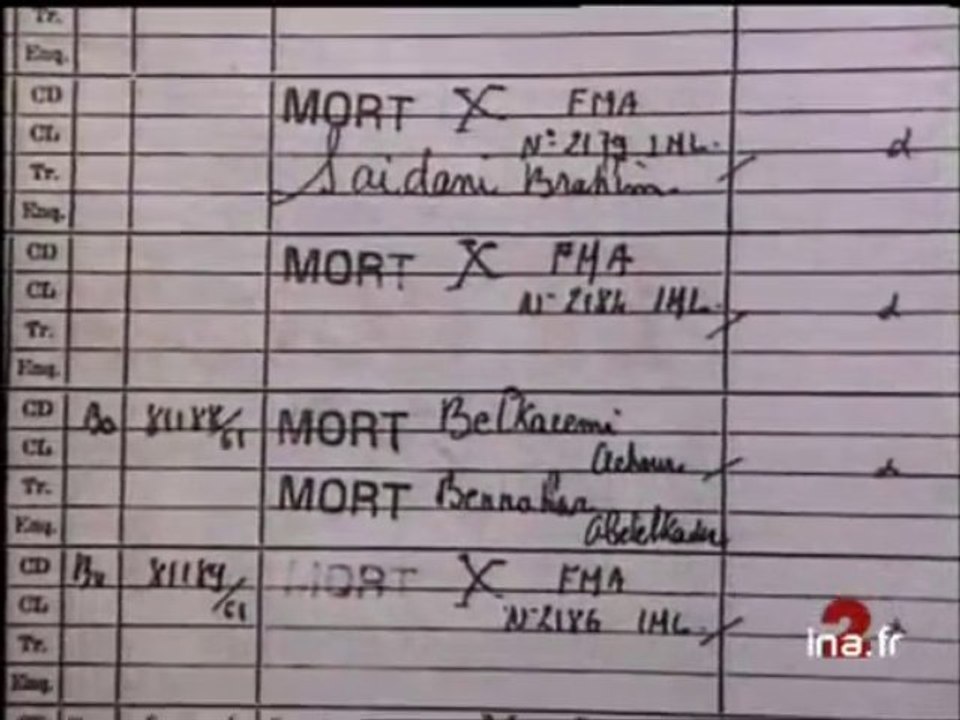 Tr.
Enq.
CD MORT X FMA
CL N° 2179 IML. d
Tr. Saidani Brahim
Enq.
CD MORT X FMA
CL N° 2184 IML. d
Tr.
Enq.
CD 81188/61 MORT Belkacemi
CL Achour
Tr. MORT Bennahar
Enq. Abdelkader
CD 81189/61 MORT X FMA
CL N° 2186 IML
Tr.
Enq.
CD
2
ina.fr